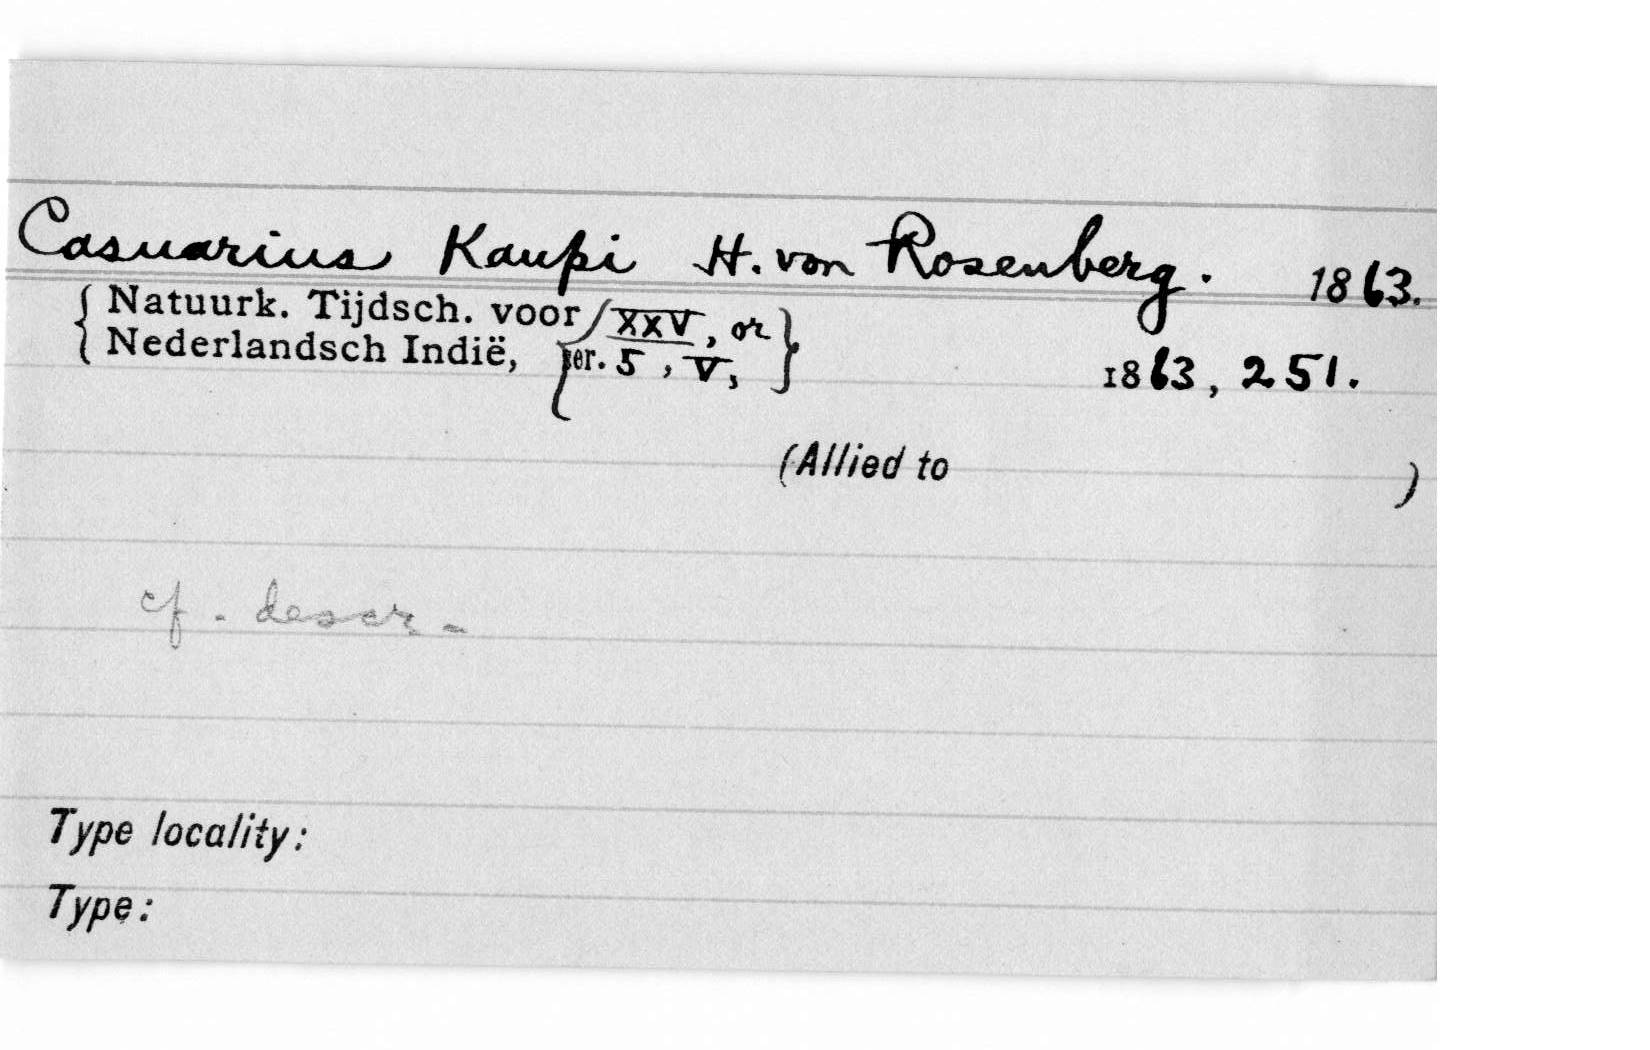 Casuarius Kaupi H. von Rosenberg. 1863.
{ Natuurk. Tijdsch. voor { XXV, or }
{ Nederlandsch Indië, { ser. 5, V, } 1863, 251.
(Allied to )
cf. descr.
Type locality:
Type: